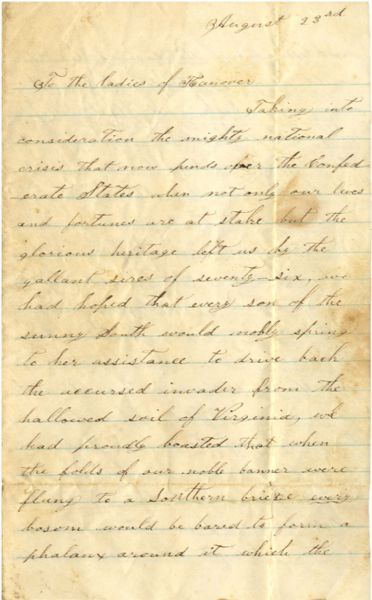 August 23rd
To the Ladies of Hanover
Taking into
consideration the mighty national
crisis that now pends over the Confed
erate States when not only our lives
and fortunes are at stake but the
glorious heritage left us by the
gallant sires of seventy-six, we
had hoped that every son of the
sunny South would nobly spring
to her assistance to drive back
the accursed invader from the
hallowed soil of Virginia, we
had proudly boasted that when
the folds of our noble banner were
flung to a Southern breeze every
bosom would be bared to form a
phalanx around it which the